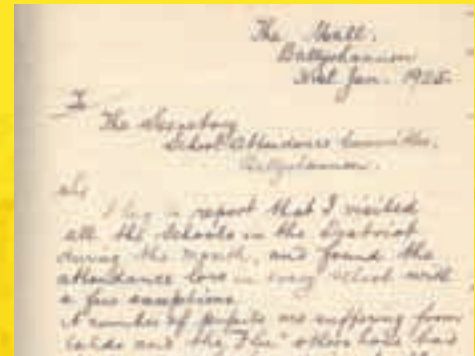 The Mall.
Ballyshannon
31st Jan. 1925.
To
The Secretary
School Attendance Committee,
Ballyshannon.
Sir
I beg to report that I visited
all the schools in the District
during the month, and found the
attendance low in every school with
a few exceptions
A number of pupils are suffering from
colds and the "Flu" others have had